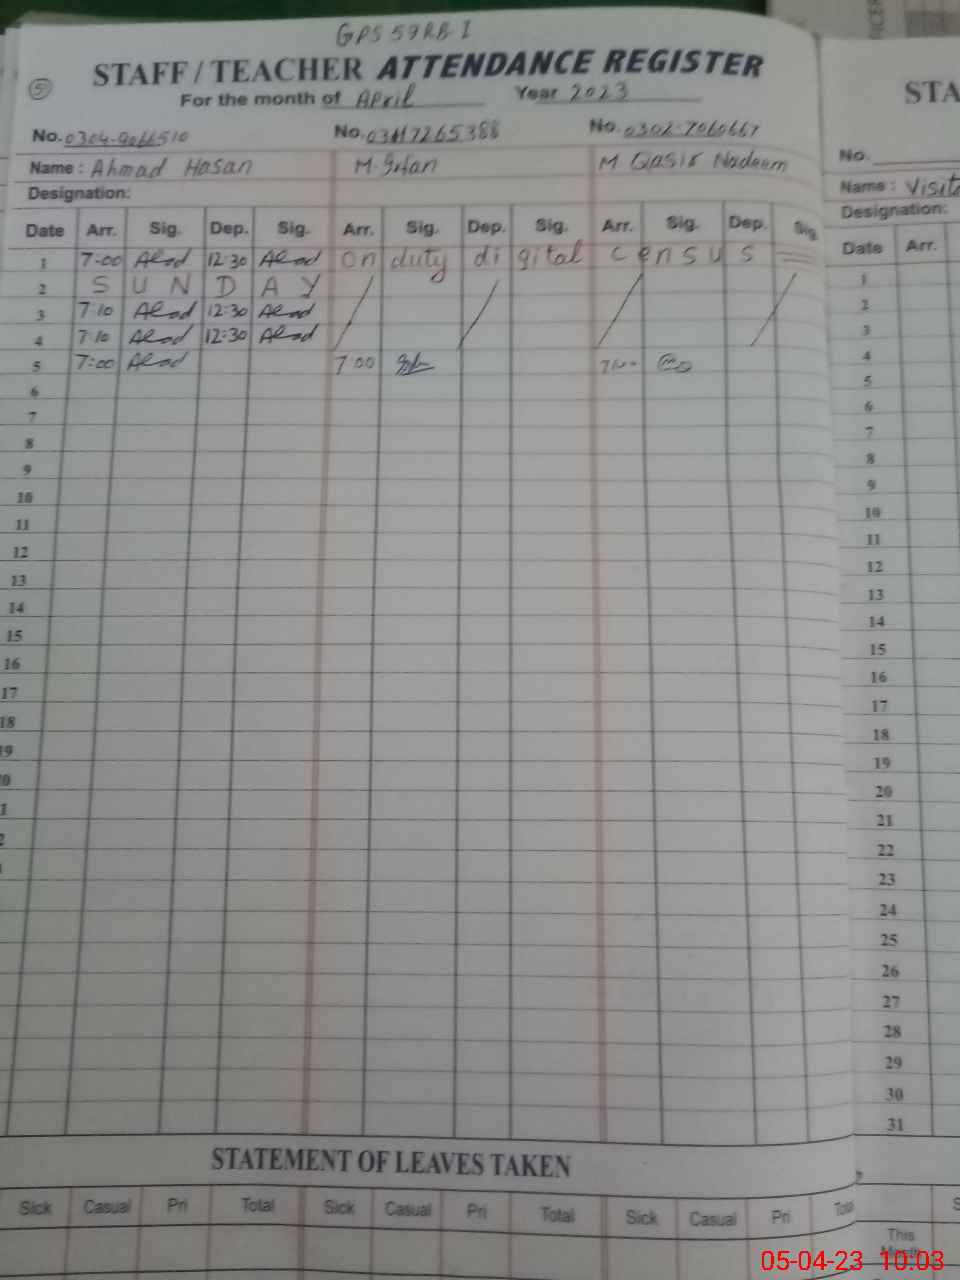 GPS 59RB-I
5
STAFF / TEACHER ATTENDANCE REGISTER
For the month of April Year 2023
No. 0304-9066510 No. 03117265388 No. 0302-7060667
Name : Ahmad Hasan M. Irfan M Qasir Nadeem
Designation:
Date Arr. Sig. Dep. Sig. Arr. Sig. Dep. Sig. Arr. Sig. Dep. Sig.
1 7-00 12:30 On duty digital census
2 SUNDAY
3 7:10 12:30
4 7:10 12:30
5 7:00 7:00
6
7
8
9
10
11
12
13
14
15
16
17
18
19
20
1
2
STATEMENT OF LEAVES TAKEN
Sick Casual Pri Total Sick Casual Pri Total Sick Casual Pri Total
STA
No.
Name : Visit
Designation:
Date Arr.
1
2
3
4
5
6
7
8
9
10
11
12
13
14
15
16
17
18
19
20
21
22
23
24
25
26
27
28
29
30
31
This
Month
05-04-23 10:03